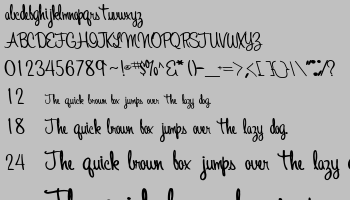 abcdefghijklmnopqrstuvwxyz
ABCDEFGHIJKLMNOPQRSTUVWXYZ
0123456789~!@#$%^&*()-_+=>,<[]{}|\"':;/?
12 The quick brown box jumps over the lazy dog.
18 The quick brown box jumps over the lazy dog.
24 The quick brown box jumps over the lazy